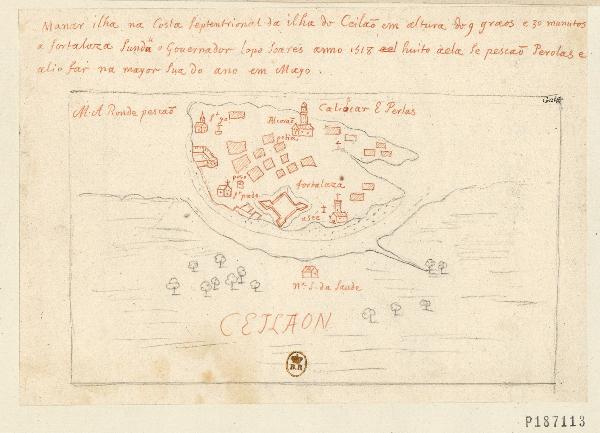 Manar ilha na Costa Septentrional da ilha de Ceilão em altura do 9 graos e 30 munutos
a fortaleza fundú o Governador Lopo Soares anno 1518 huito a ela se pescaõ Perolas e
aliofar na mayor Sua do ano em Mayo.
M. A Ronde pescaõ
Catiacar E Perlas
Alcoraõ
pesso
fortaleza
N.ª S. da Saude
CEILAON
B.R
P187113